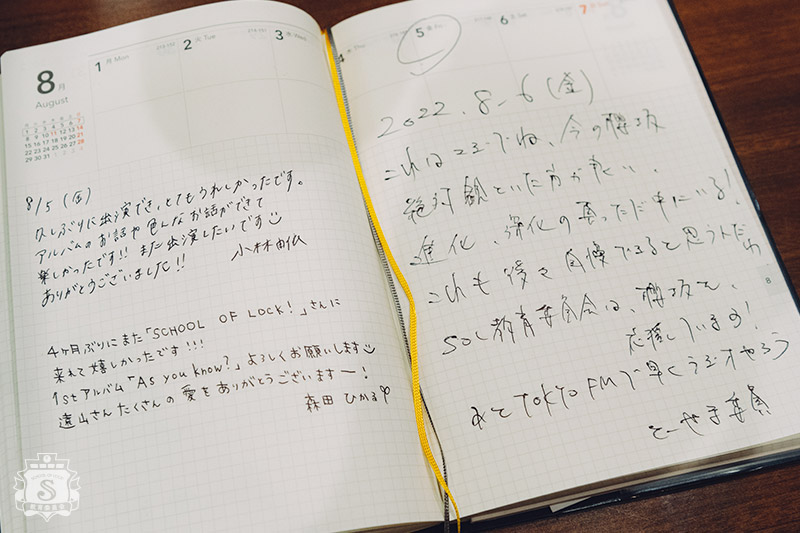 8月
August
1 月 Mon
2 火 Tue
3 水 Wed
4
5
6
7
8/5(金)
久しぶりに出演でき、とてもうれしかったです。
アルバムのお話や色んなお話ができて
楽しかったです!! また出演したいです
ありがとうございました!!
小林由依
4ヶ月ぶりにまた「SCHOOL OF LOCK!」さんに
来れて嬉しかったです!!!
1stアルバム「As you know?」よろしくお願いします
遠山さんたくさんの愛をありがとうございますー!
森田ひかる♡
2022.8.6(金)
これはマジでね、今の櫻坂
絶対観といた方が良い、
進化、強化の真っただ中にいる!
これも後々自慢できると思うんだわ
SOL教育委員会は、櫻坂を、
応援しています!
TOKYO FMで早くラジオやろう
とーやま委員
8
S